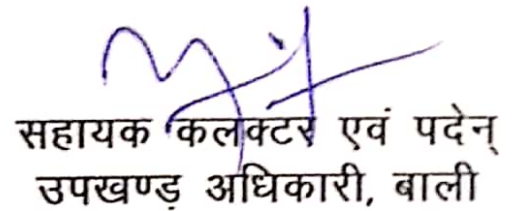 सहायक कलक्टर एवं पदेन्
उपखण्ड़ अधिकारी, बाली